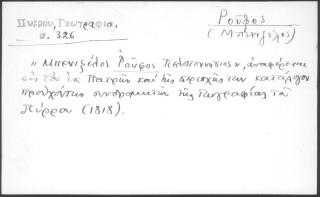 Πύρρου, Γεωγραφία,
σ. 326
Ροῦφος
(Μπενιζέλος)
"Μπενιζέλος Ροῦφος Πελοποννήσιος", ἀναφέρεται
εἰς τὸν ἐκ Πατρῶν καὶ τῆς περιοχῆς των κατάλογον
προὐχόντων συνδρομητῶν τῆς Γεωγραφίας τοῦ
Πύρρου (1818).